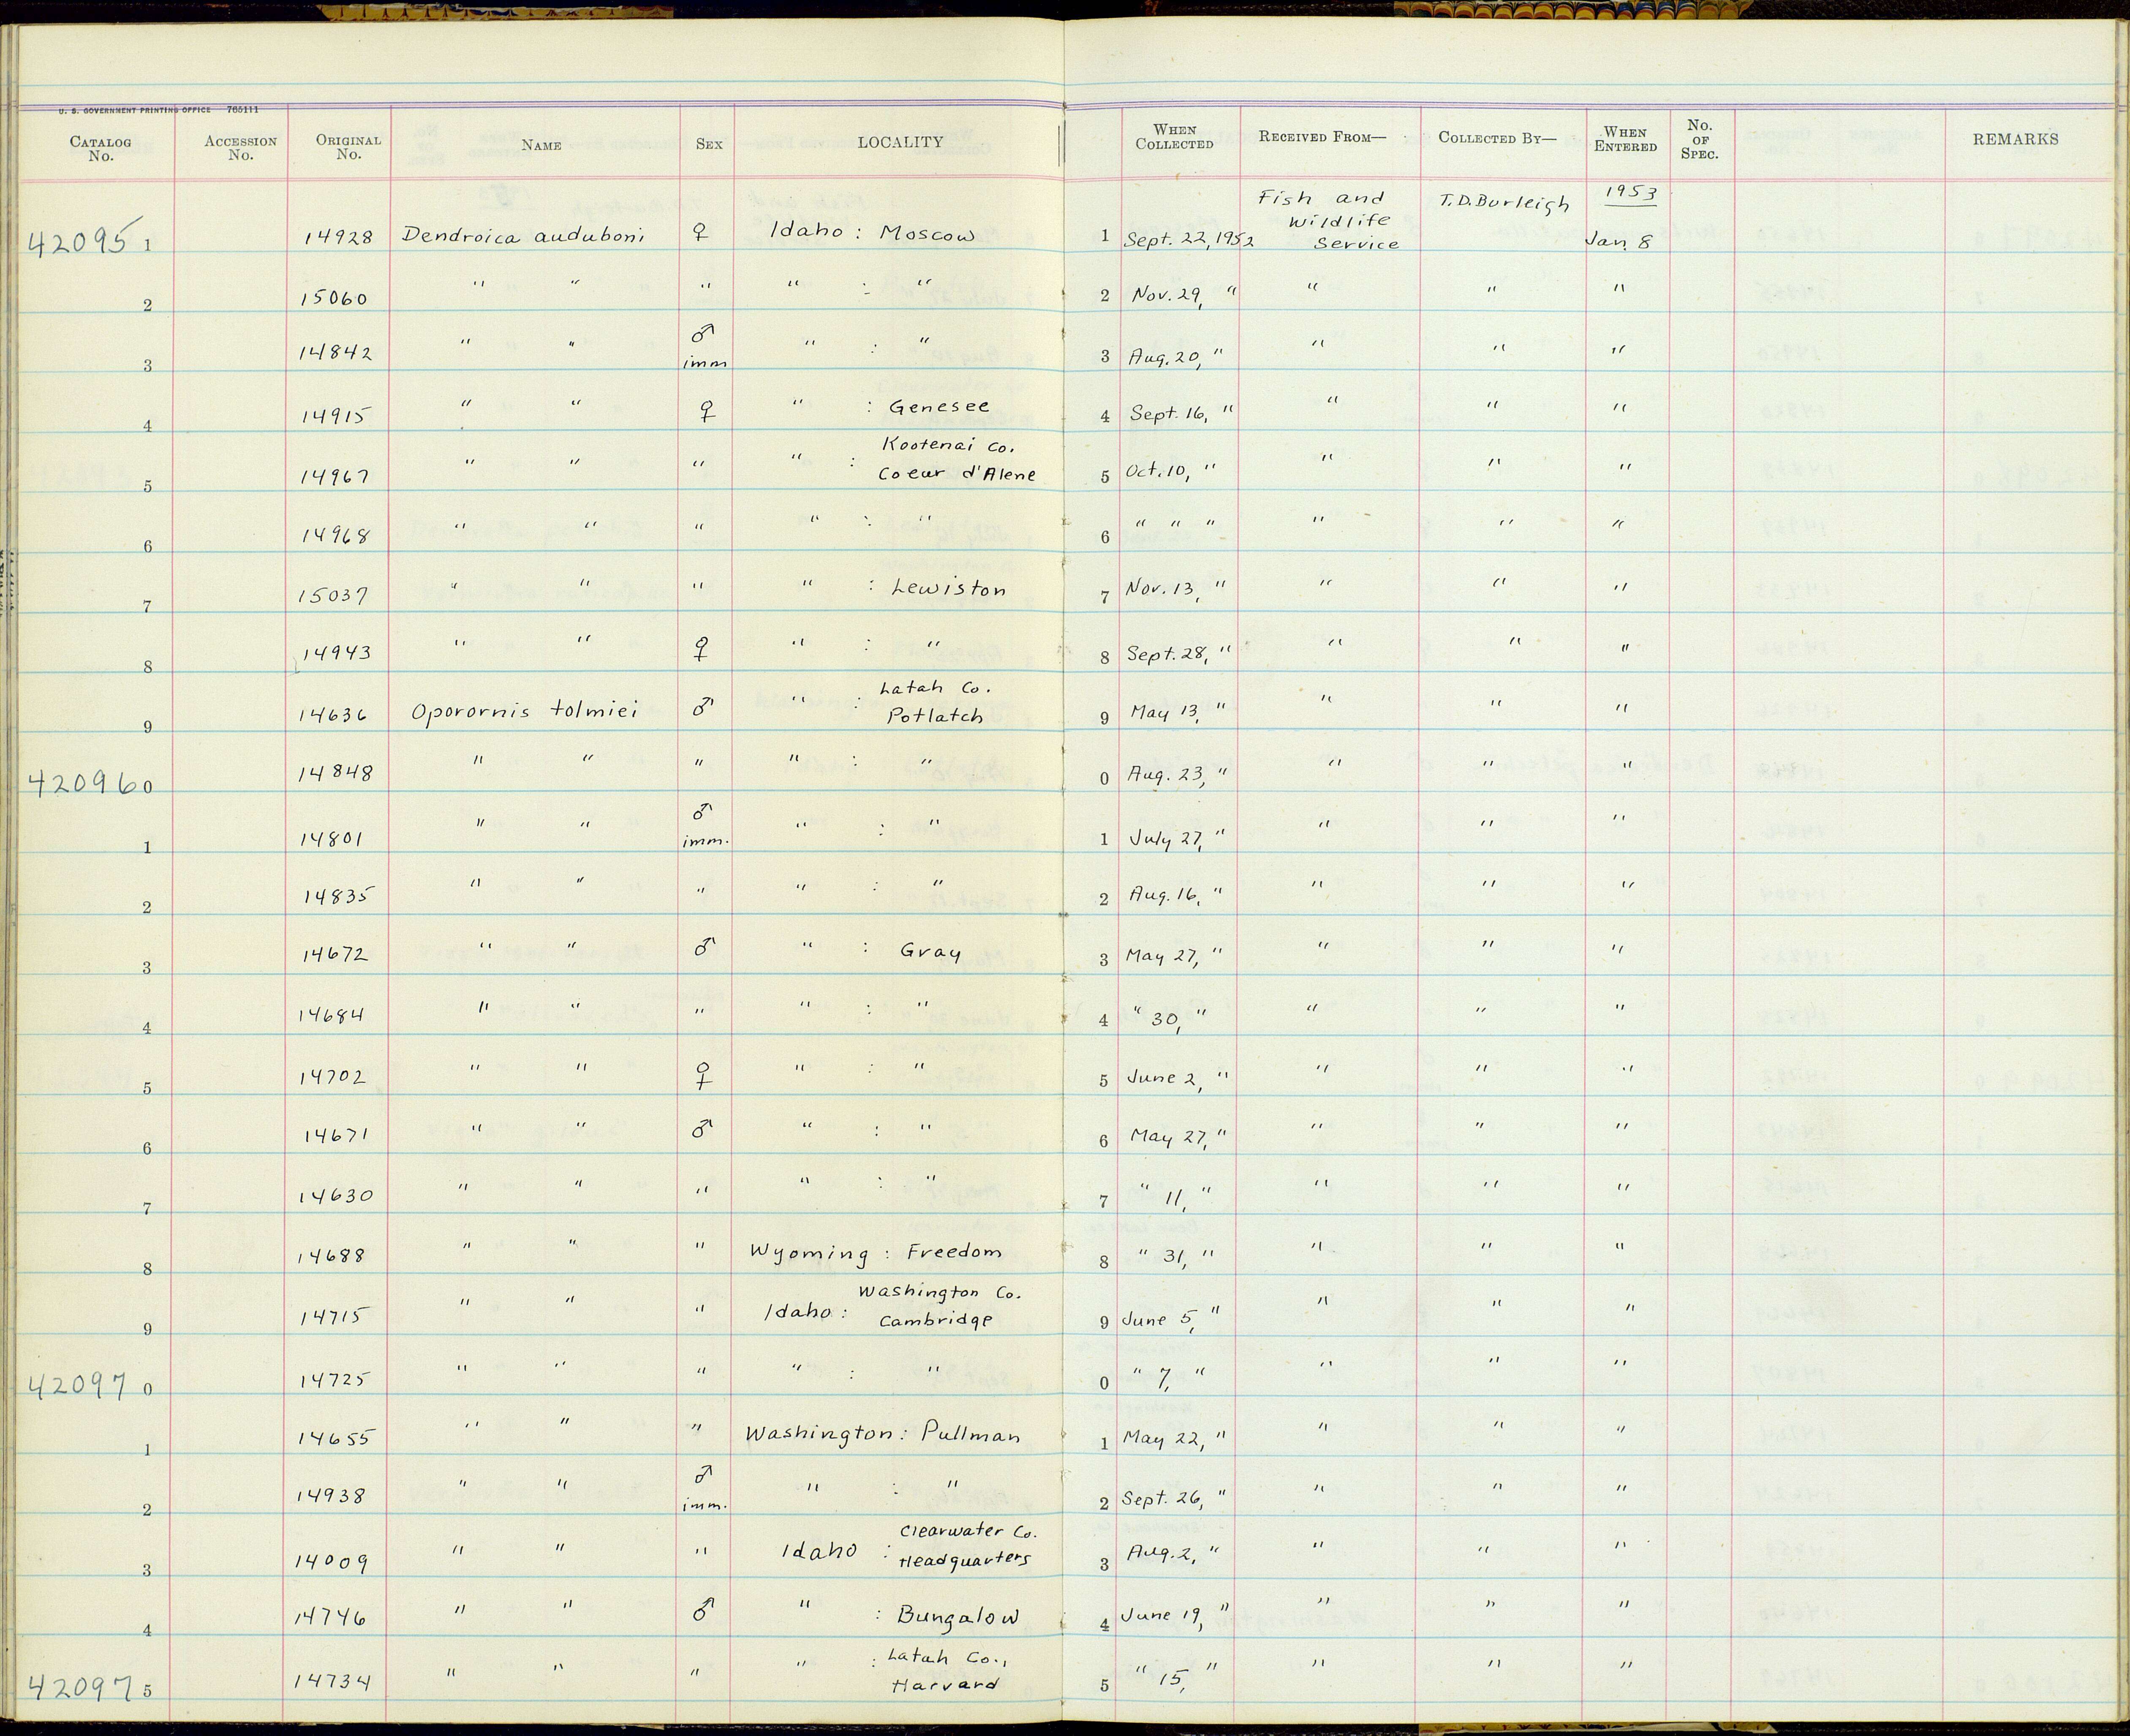 U. S. GOVERNMENT PRINTING OFFICE 765111
CATALOG No. ACCESSION No. ORIGINAL No. NAME SEX LOCALITY WHEN COLLECTED RECEIVED FROM— COLLECTED BY— WHEN ENTERED No. OF SPEC. REMARKS
42095 1 14928 Dendroica auduboni ♀ Idaho : Moscow 1 Sept. 22, 1952 Fish and Wildlife Service T.D. Burleigh 1953 Jan. 8
2 15060 " " " " : " 2 Nov. 29, " " " "
3 14842 " " ♂ imm " : " 3 Aug. 20, " " " "
4 14915 " " ♀ " : Genesee 4 Sept. 16, " " " "
5 14967 " " " " : Kootenai Co. Coeur d'Alene 5 Oct. 10, " " " "
6 14968 " " " " : " 6 " " " " " "
7 15037 " " " " : Lewiston 7 Nov. 13, " " " "
8 14943 " " ♀ " : " 8 Sept. 28, " " " "
9 14636 Oporornis tolmiei ♂ " : Latah Co. Potlatch 9 May 13, " " " "
42096 0 14848 " " " " : " 0 Aug. 23, " " " "
1 14801 " " ♂ imm. " : " 1 July 27, " " " "
2 14835 " " " " : " 2 Aug. 16, " " " "
3 14672 " " ♂ " : Gray 3 May 27, " " " "
4 14684 " " " " : " 4 " 30, " " " "
5 14702 " " ♀ " : " 5 June 2, " " " "
6 14671 " " ♂ " : " 6 May 27, " " " "
7 14630 " " " " : " 7 " 11, " " " "
8 14688 " " " Wyoming : Freedom 8 " 31, " " " "
9 14715 " " " Idaho : Washington Co. Cambridge 9 June 5, " " " "
42097 0 14725 " " " " : " 0 " 7, " " " "
1 14655 " " " Washington : Pullman 1 May 22, " " " "
2 14938 " " ♂ imm. " : " 2 Sept. 26, " " " "
3 14009 " " " Idaho : Clearwater Co. Headquarters 3 Aug. 2, " " " "
4 14746 " " ♂ " : Bungalow 4 June 19, " " " "
42097 5 14734 " " " " : Latah Co., Harvard 5 " 15, " " " "